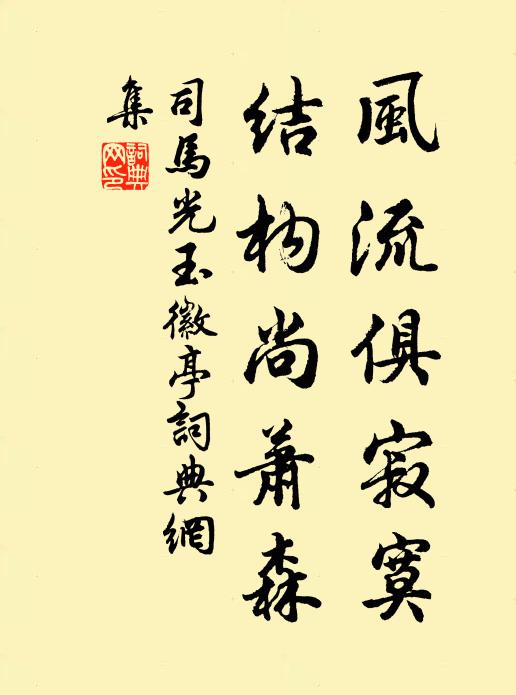 風流俱寂寞
結构尚蕭森
司馬光玉徽亭詞典網
集
詞典網印